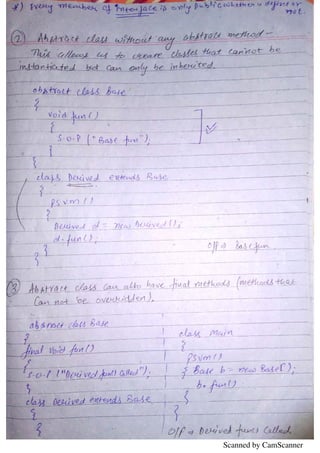 *) Every member of Interface is only Public whether u define or
not.
② Abstract class without any abstract method –
This allows us to create classes that cannot be
instantiated but can only be inherited.
abstract class Base
{
void fun()
{
S.O.P ("Base fun");
}
}
class Derived extends Base
{
psvm()
{
Derived d = new Derived();
d.fun();
}
}
O/P ⇒ Base fun
③ Abstract class can also have final methods (methods that
can not be overridden).
abstract class Base
{
final void fun()
{
S.O.P ("Derived fun() called");
}
class Derived extends Base
{
}
class Main
{
psvm()
{ Base b = new Base();
b. fun()
}
}
O/P ⇒ Derived fun() Called.
Scanned by CamScanner